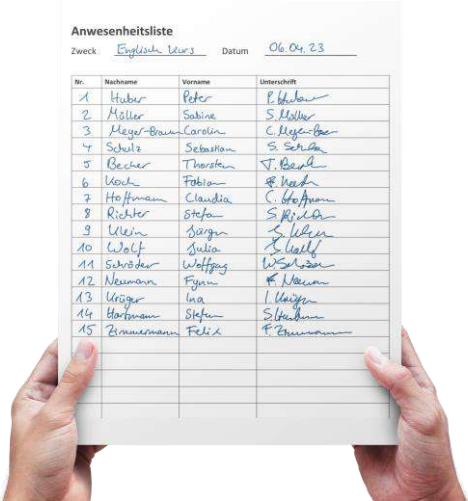 Anwesenheitsliste
Zweck Englisch Kurs Datum 06.04.23
Nr. Nachname Vorname Unterschrift
1 Huber Peter P. Huber
2 Möller Sabine S. Möller
3 Meyer-Braun Carolin C. Meyer-
4 Schulz Sebastian S. Schulz
5 Becher Thorsten T. Bech
6 Koch Fabian F. Koch
7 Hoffmann Claudia C. Hoffmann
8 Richter Stefan S. Richter
9 Klein Jürgen J. Klein
10 Wolf Julia J. Wolf
11 Schröder Wolfgang W. Schröder
12 Neumann Fynn F. Neumann
13 Krüger Ina I. Krüger
14 Hartmann Stefan S. Hartmann
15 Zimmermann Felix F. Zimmermann